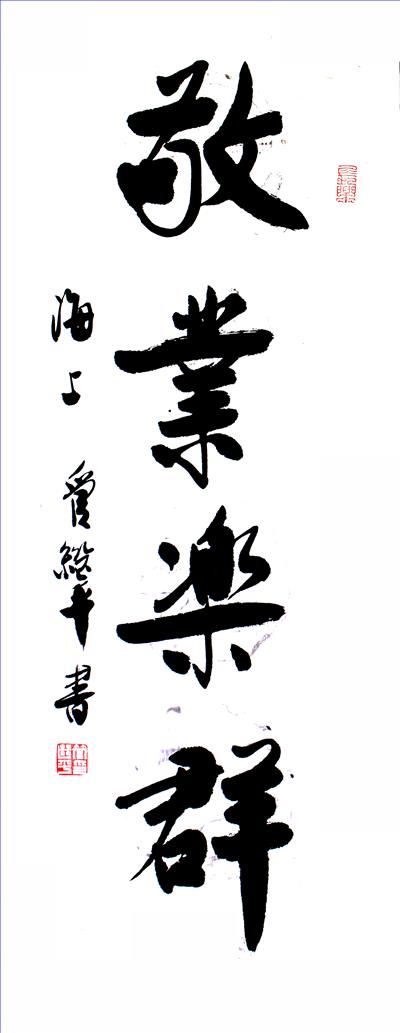 敬業樂群
海上
書